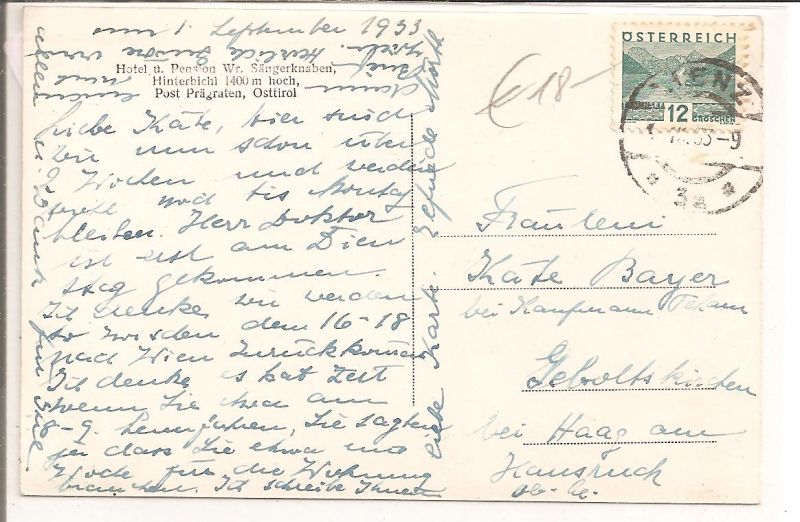 1. September 1933
Hotel u. Pension Wr. Sängerknaben,
Hinterbichl 1400 m hoch,
Post Prägraten, Osttirol
Liebe Käte, hier sind
wir nun schon über
2 Wochen und werden
wohl noch bis Montag
bleiben. Herr Doktor
ist erst am Dien
stag gekommen.
Ich denke, wir werden
so zwischen dem 16-18
nach Wien zurückkommen
Ich denke es hat Zeit
wenn Sie etwa am
8-9. heimfahren, Sie sagten
ja dass Sie etwa eine
Woche für die Wohnung
brauchen. Ich schreibe Ihnen
liebe Karte.
Herzliche Grüsse von
ÖSTERREICH
12
GROSCHEN
LIENZ
33-9
3a
€ 18-
Fräulein
Käte Bayer
bei Kaufmann
Geboltskirchen
bei Haag am
Hausruck